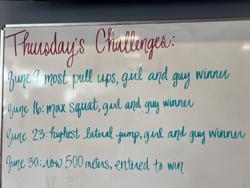 Thursday's Challenges:
June 9: most pull ups, girl and guy winner
June 16: max squat, girl and guy winner
June 23: highest lateral jump, girl and guy winner
June 30: row 500 meters, entered to win